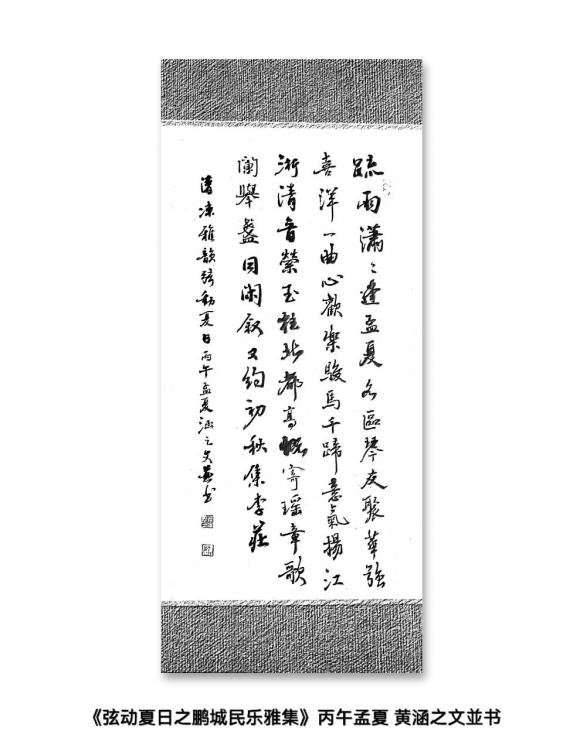 疏雨瀟〻逢孟夏各區琴友聚華強
喜洋一曲心歡樂駿馬千蹄意氣揚江
浙清音縈玉柱北都高慨寄瑶章歌
闌舉盞同闲敘又約初秋集李莊
清凉雅韻弦動夏日丙午孟夏涵之文並书
《弦动夏日之鹏城民乐雅集》丙午孟夏 黄涵之文並书